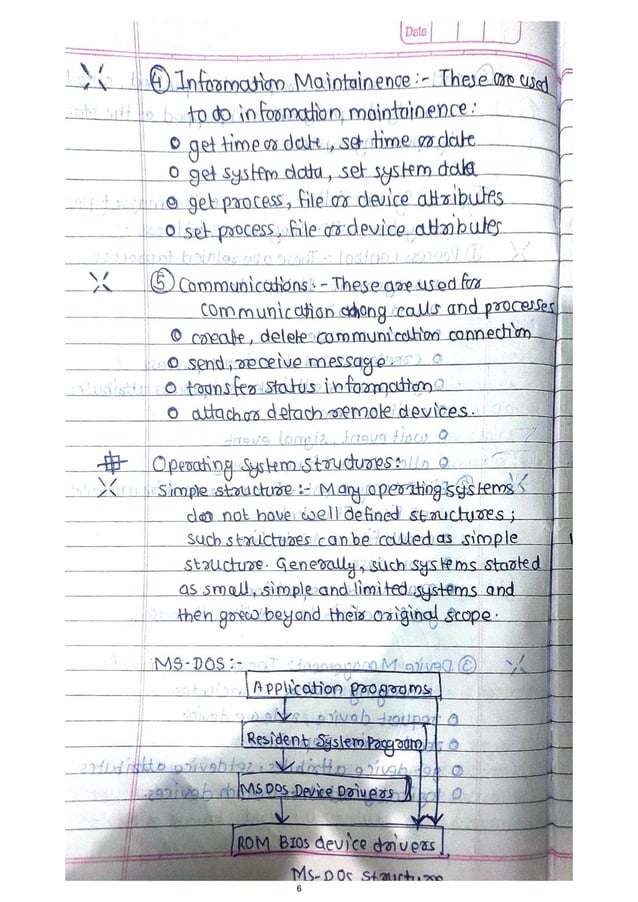 Date
④ Information Maintainence :- These are used
to do information maintainence :
get time or date, set time or date
get system data, set system data
get process, file or device attributes
set process, file or device attributes
⑤ Communications :- These are used for
communication among calls and processes
create, delete communication connection
send, receive message
transfer status information
attach or detach remote devices.
# Operating System Structures :-
Simple structure :- Many operating systems
do not have well defined structures ;
such structures can be called as simple
structure. Generally, such systems started
as small, simple and limited systems and
then grew beyond their original scope.
MS-DOS :-
Application programs
Resident System Program
MSDOS Device Drivers
ROM BIOS device drivers
MS-DOS Structure
6